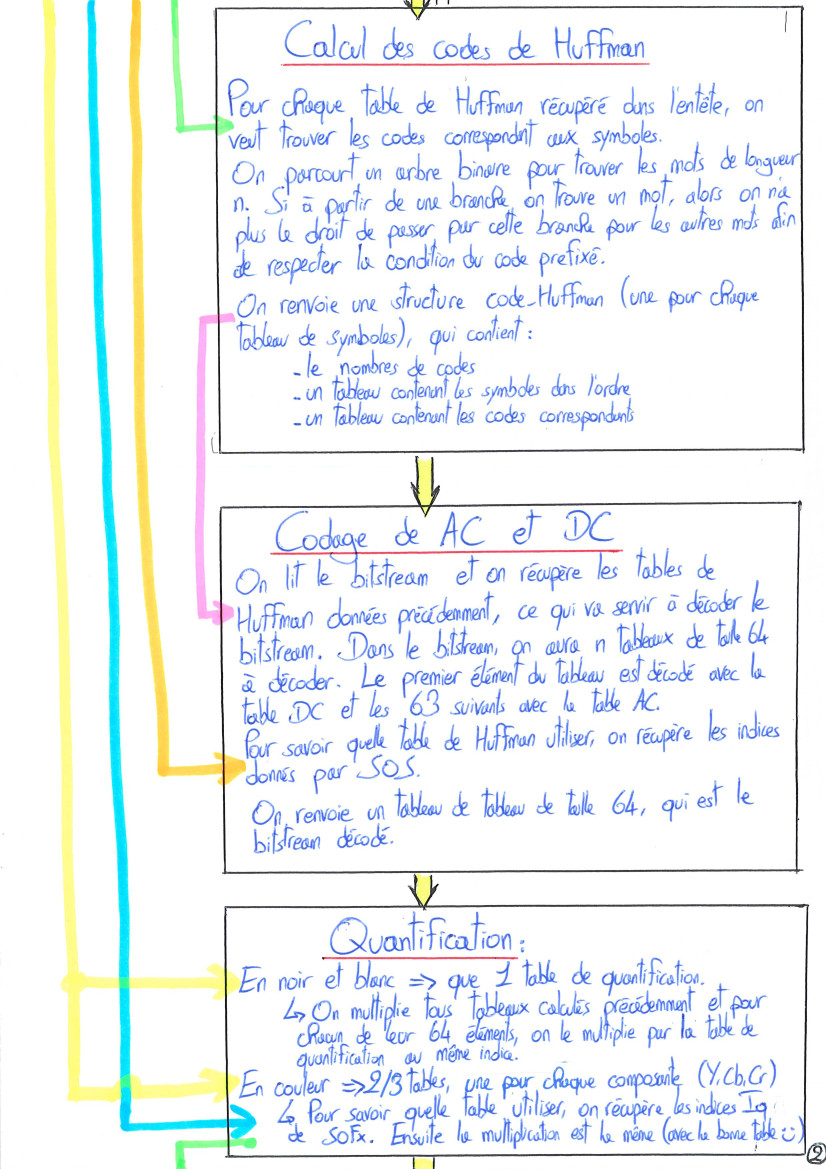 Calcul des codes de Huffman
Pour chaque table de Huffman récupéré dans l'entête, on
veut trouver les codes correspondnt aux symboles.
On parcourt un arbre binaire pour trouver les mots de longueur
n. Si à partir de une branche, on trouve un mot, alors on n'a
plus le droit de passer par cette branche pour les autres mots afin
de respecter la condition du code prefixé.
On renvoie une structure code_Huffman (une pour chaque
tableau de symboles), qui contient :
- le nombres de codes
- un tableau contenant les symboles dans l'ordre
- un tableau contenant les codes correspondants
Codage de AC et DC
On lit le bitstream et on récupère les tables de
Huffman données précédemment, ce qui va servir à décoder le
bitstream. Dans le bitstream, on aura n tableaux de taille 64
à décoder. Le premier élément du tableau est décodé avec la
table DC et les 63 suivants avec la table AC.
Pour savoir quelle table de Huffman utiliser, on récupère les indices
donnés par SOS.
On renvoie un tableau de tableau de taille 64, qui est le
bitstream décodé.
Quantification :
En noir et blanc => que 1 table de quantification.
↳ On multiplie tous tableaux calculés précédemment et pour
chacun de leur 64 éléments, on le multiplie par la table de
quantification au même indice.
En couleur => 2/3 tables, une pour chaque composante (Y,Cb,Cr)
↳ Pour savoir quelle table utiliser, on récupère les indices Iq
de SOFx. Ensuite la multiplication est la même (avec la bonne table ☺)
2